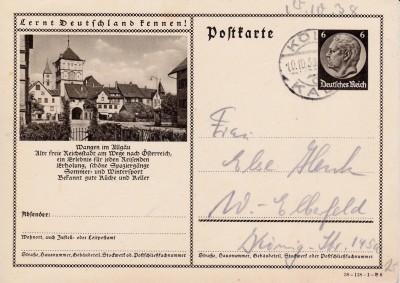 10.10.38
Lernt Deutschland kennen!
Postkarte
KÖLN
10.10.3
6 6
Deutsches Reich
Wangen im Allgäu
Alte freie Reichsstadt am Wege nach Österreich,
ein Erlebnis für jeden Reisenden
Erholung, schöne Spaziergänge
Sommer- und Wintersport
Bekannt gute Küche und Keller
Absender:
Wohnort, auch Zustell- oder Leitpostamt
Straße, Hausnummer, Gebäudeteil, Stockwerk od. Postschließfachnummer
Frau
Else
W.-Elberfeld
König-Str.
Straße, Hausnummer, Gebäudeteil, Stockwerk od. Postschließfachnummer